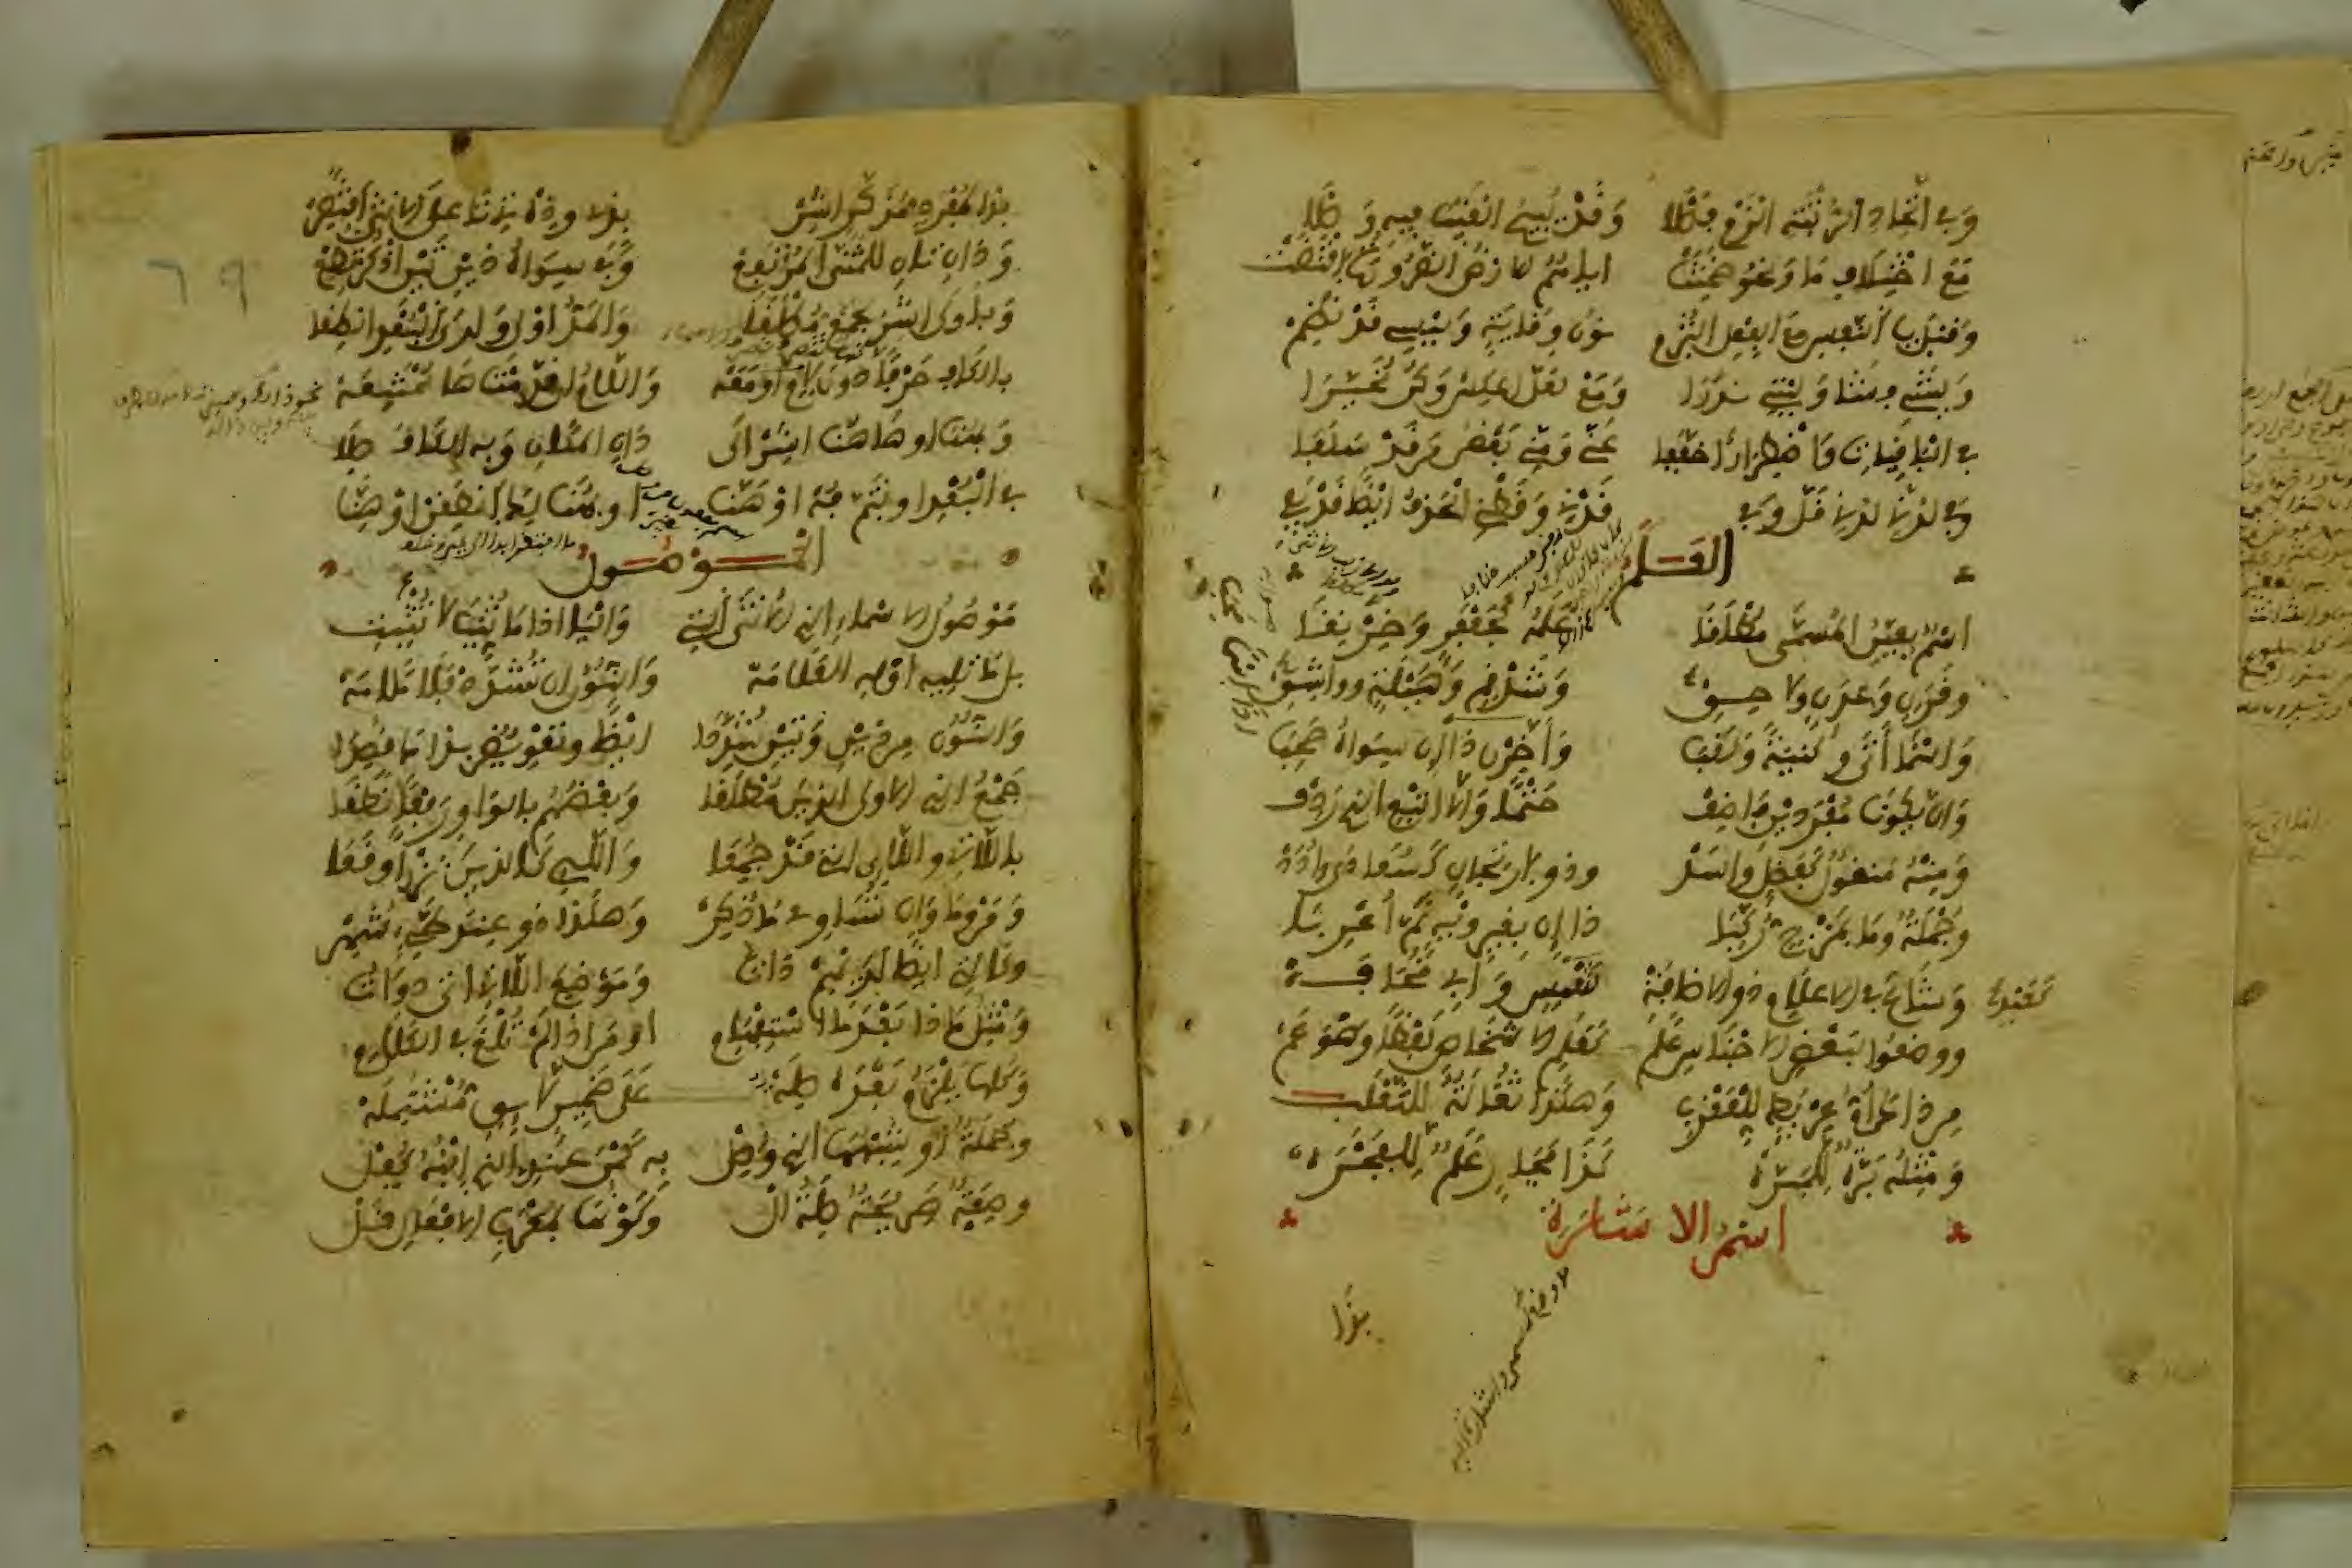 وفي اتحاد الرتبة الزم فصلا وقد يبيح الغيب فيه وصلا
مع اختلاف ما ونحو ضمنت اياهم الارض الضرورة اقتضت
وقبل يا النفس مع الفعل التزم نون وقاية وليسي قد نظم
وليتني فشا وليتي ندرا ومع لعل اعكس وكن مخيرا
في الباقيات واضطرارا خففا مني وعني بعض من قد سلفا
وفي لدني لدني قل وفي قدني وقطني الحذف ايضا قد يفي
العلم
اسم يعين المسمى مطلقا علمه كجعفر وخرنقا
وقرن وعدن ولاحق وشذقم وهيلة وواشق
واسما اتى وكنية ولقبا واخرن ذا ان سواه صحبا
وان يكونا مفردين فاضف حتما والا اتبع الذي ردف
ومنه منقول كفضل واسد وذو ارتجال كسعاد وادد
وجملة وما بمزج ركبا ذا ان بغير ويه تم اعربا
وشاع في الاعلام ذو الاضافة كعبد شمس وابي قحافة
ووضعوا لبعض الاجناس علم كعلم الاشخاص لفظا وهو عم
من ذا ام عريط للعقرب وهكذا ثعالة للثعلب
ومثله برة للمبرة كذا فجار علم للفجرة
اسم الاشارة
بذا
بذا لمفرد مذكر اشر بذي وذه تي تا على الانثى اقتصر
وذان تان للمثنى المرتفع وفي سواه ذين تين اذكر تطع
وباولى اشر لجمع مطلقا والمد اولى ولدى البعد انطقا
بالكاف حرفا دون لام او معه واللام ان قدمت ها ممتنعه
وبهنا او هاهنا اشر الى داني المكان وبه الكاف صلا
في البعد او بثم فه او هنا او بهنالك انطقن او هنا
الموصول
موصول الاسماء الذي الانثى التي واليا اذا ما ثنيا لا تثبت
بل ما تليه اوله العلامه والنون ان تشدد فلا ملامه
والنون من ذين وتين شددا ايضا وتعويض بذاك قصدا
جمع الذي الاولى الذين مطلقا وبعضهم بالواو رفعا نطقا
باللات واللاء التي قد جمعا واللاء كالذين نزرا وقعا
ومن وما وال تساوي ما ذكر وهكذا ذو عند طيء شهر
وكالتي ايضا لديهم ذات وموضع اللاتي اتى ذوات
ومثل ما ذا بعد ما استفهام او من اذا لم تلغ في الكلام
وكلها يلزم بعده صله على ضمير لائق مشتمله
وجملة او شبهها الذي وصل به كمن عندي الذي ابنه كفل
وصفة صريحة صلة ال وكونها بمعرب الافعال قل